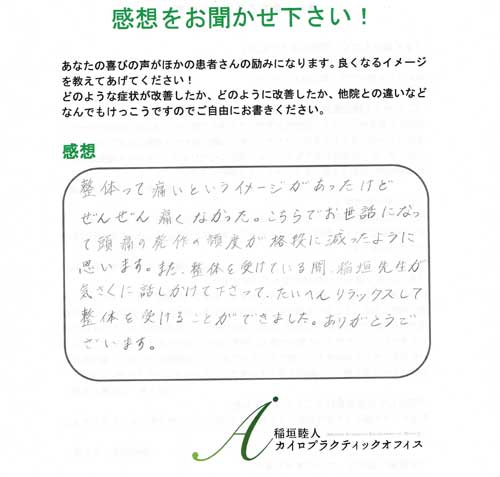 感想をお聞かせ下さい！
あなたの喜びの声がほかの患者さんの励みになります。良くなるイメージ
を教えてあげてください！
どのような症状が改善したか、どのように改善したか、他院との違いなど
なんでもけっこうですのでご自由にお書きください。
感想
整体って痛いというイメージがあったけど
ぜんぜん痛くなかった。こちらでお世話になっ
て頭痛の発作の頻度が格段に減ったように
思います。また、整体を受けている間、稲垣先生が
気さくに話しかけて下さって、たいへんリラックスして
整体を受けることができました。ありがとうご
ざいます。
稲垣睦人
カイロプラクティックオフィス